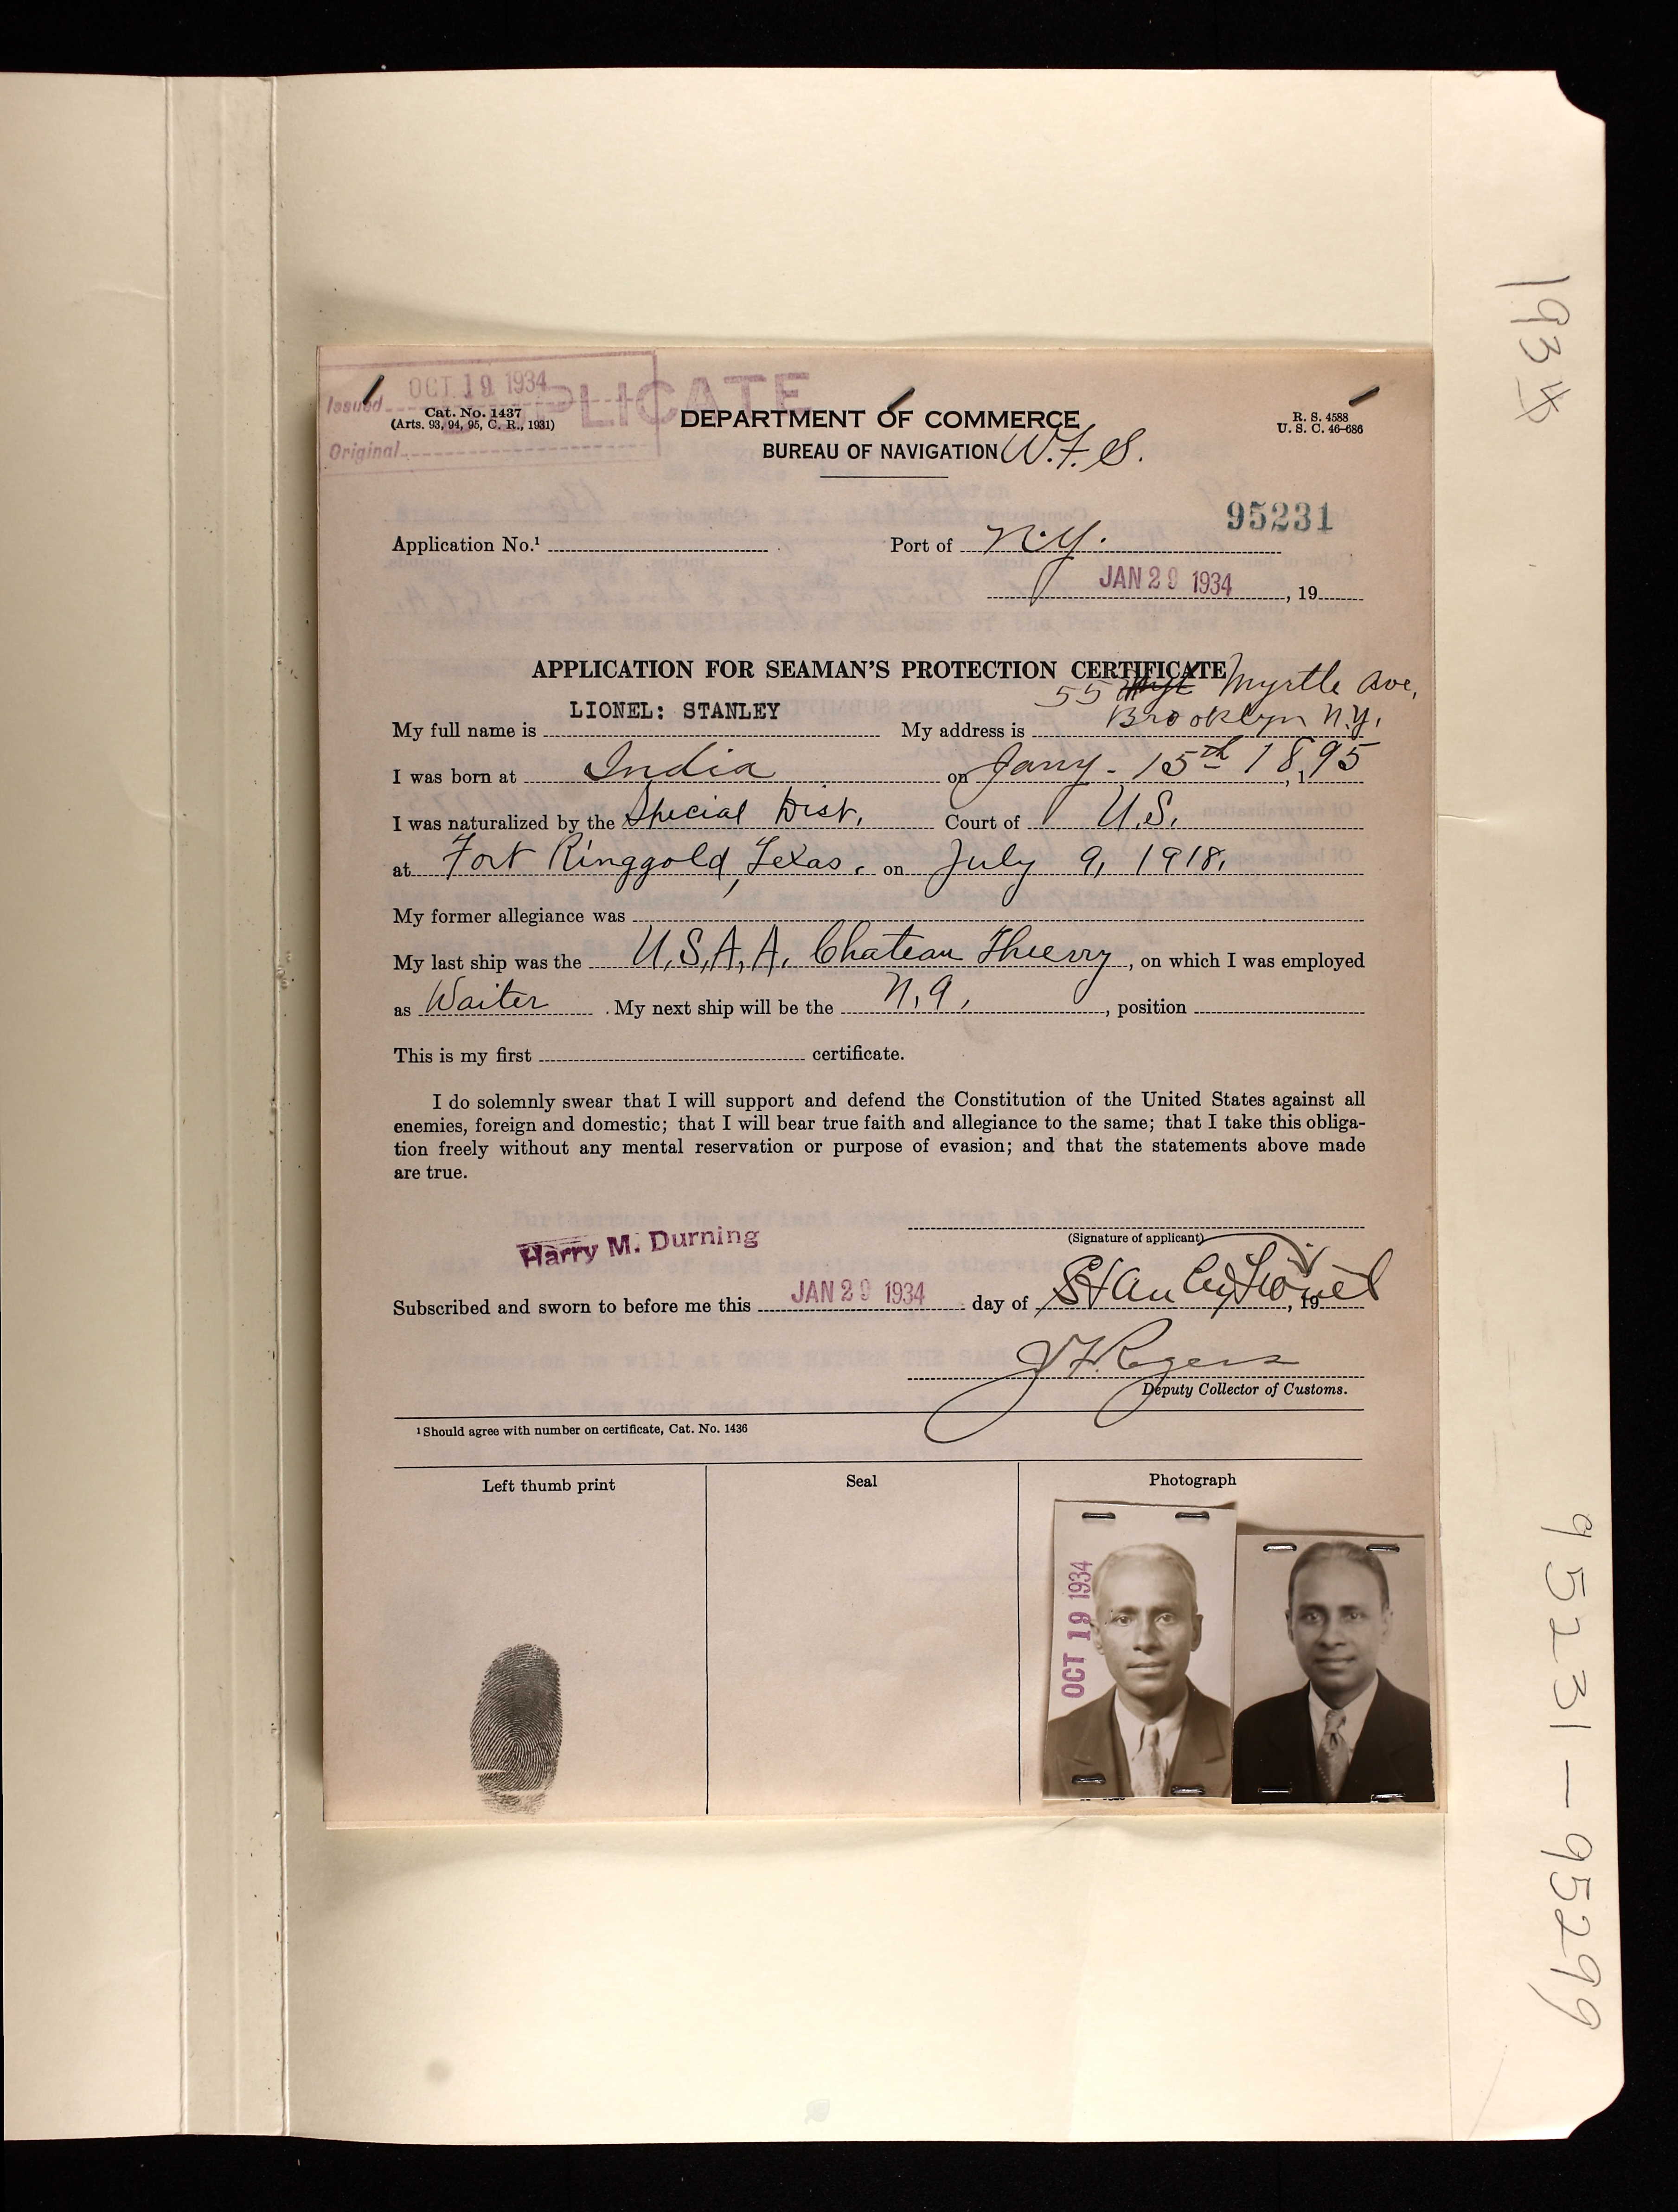 DUPLICATE
Issued OCT 19 1934
Original
Cat. No. 1437
(Arts. 93, 94, 95, C. R., 1931)
DEPARTMENT OF COMMERCE
BUREAU OF NAVIGATION W.F.S.
R. S. 4588
U. S. C. 46-686
95231
Application No.¹
Port of N.Y.
JAN 29 1934, 19
APPLICATION FOR SEAMAN'S PROTECTION CERTIFICATE
55 Myrtle Ave,
My full name is LIONEL: STANLEY My address is Brooklyn N.Y.
I was born at India on Jany. 15th 1895
I was naturalized by the Special Dist. Court of U.S.
at Fort Ringgold, Texas. on July 9, 1918.
My former allegiance was
My last ship was the U.S.A.A. Chateau Thierry, on which I was employed
as Waiter. My next ship will be the N.A., position
This is my first certificate.
I do solemnly swear that I will support and defend the Constitution of the United States against all
enemies, foreign and domestic; that I will bear true faith and allegiance to the same; that I take this obliga-
tion freely without any mental reservation or purpose of evasion; and that the statements above made
are true.
(Signature of applicant)
Harry M. Durning
Stanley Lionel
Subscribed and sworn to before me this JAN 29 1934 day of , 19
J F Rogers
Deputy Collector of Customs.
¹ Should agree with number on certificate, Cat. No. 1436
Left thumb print
Seal
Photograph
OCT 19 1934
1934
95231 — 95299